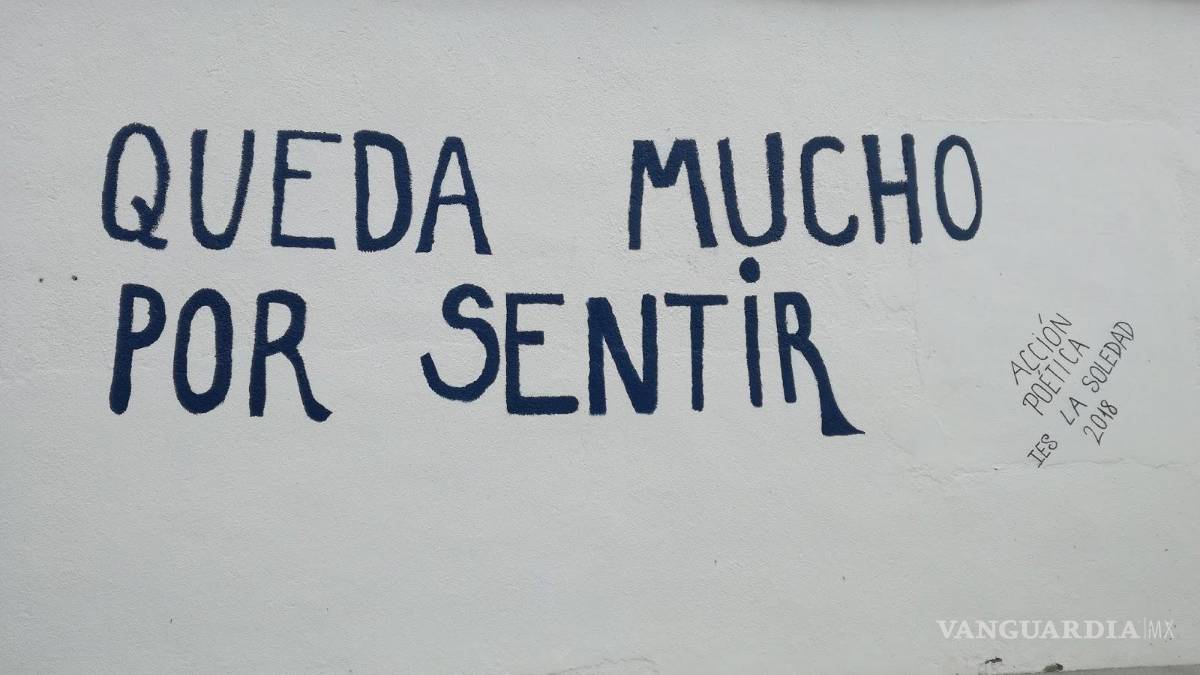 QUEDA MUCHO
POR SENTIR
ACCIÓN
POÉTICA
IES LA SOLEDAD
2018
VANGUARDIA|MX